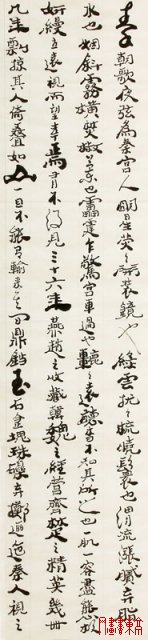 朝歌夜弦為秦宮人明星熒熒開裝鏡也綠雲擾擾梳曉鬟也渭流漲膩弃脂
水也烟斜霧橫焚椒蘭也雷霆乍驚宮車過也轆轆遠聽杳不知其所之也一肌一容盡態極
妍縵立遠視而望幸焉有不得見三十六年燕趙之收藏韓魏之經營齊楚之精英幾世
几年剽掠其人倚疊如山一旦不能有輸來其間鼎鐺玉石金塊珠礫弃擲邐迤秦人視之